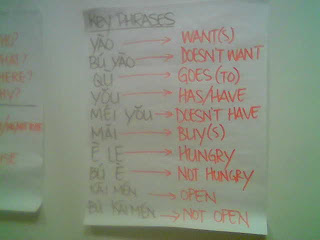 KEY PHRASES
YÀO → WANT(S)
BÚ YÀO → DOESN'T WANT
QÙ → GOES (TO)
YǑU → HAS/HAVE
MÉI YǑU → DOESN'T HAVE
MǍI → BUY(S)
È LE → HUNGRY
BÚ È → NOT HUNGRY
KĀI MÉN → OPEN
BÙ KĀI MÉN → NOT OPEN